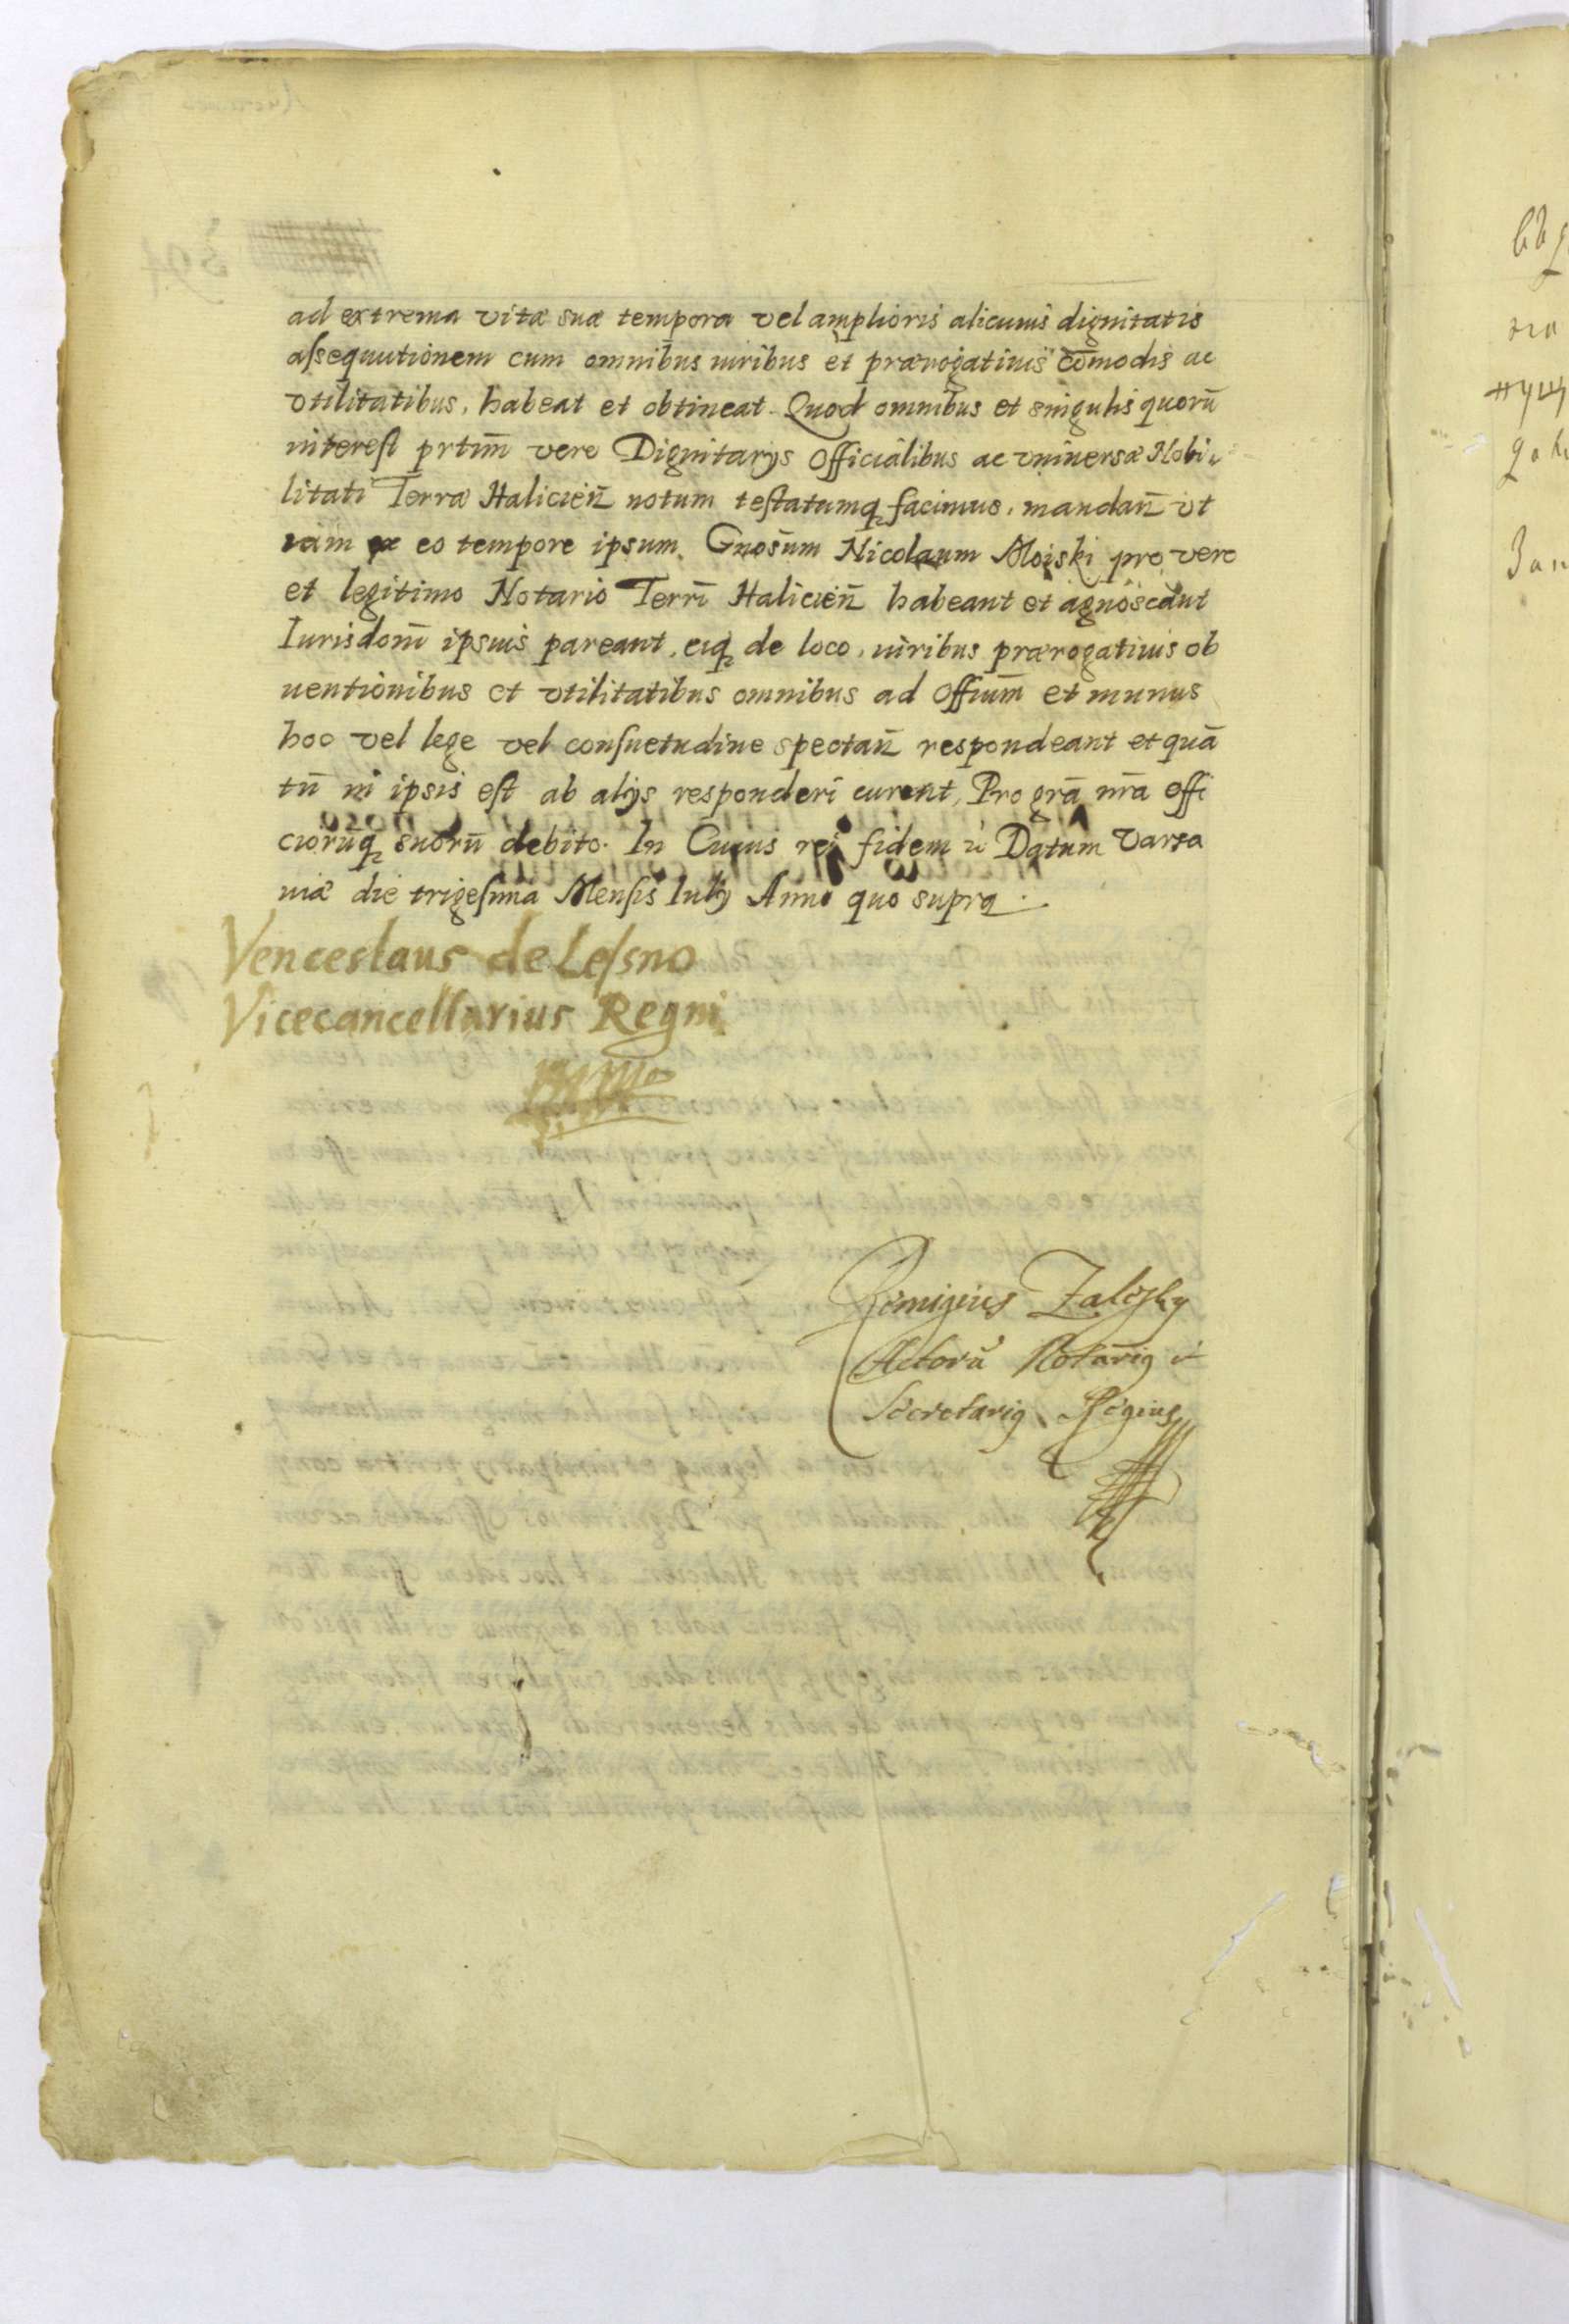 ad extrema vitæ suæ tempora vel amplioris alicuius dignitatis
assequutionem cum omnibus iuribus et prærogatiuis com̄odis ac
vtilitatibus, habeat et obtineat. Quod omnibus et singulis quorū
interest prtim̄ vero Dignitarijs Officialibus ac vniuersæ Nobi
litati Terræ Halicien̄ notum testatumq facimus, mandan̄ vt
iam ex eo tempore ipsum Gnosum Nicolaum Moiski pro vero
et legitimo Notario Terrī Halicien̄ habeant et agnoscant
Iurisdom̄ ipsius pareant, eiq de loco, iuribus prærogatiuis ob
uentionibus et vtilitatibus omnibus ad Offium̄ et munus
hoc vel lege vel consuetudine spectan̄ respondeant et quā
tū in ipsis est ab alijs responderi curent, Pro grā nr̄a offi
ciorūq suorū debito. In Cuius rei fidem Datum Varsa
uiæ die trigesima Mensis Iulij Anno quo supra.
Venceslaus de Lessno
Vicecancellarius Regni
Remigius Zalesky
Actorū Notariq
Secretariq Regius